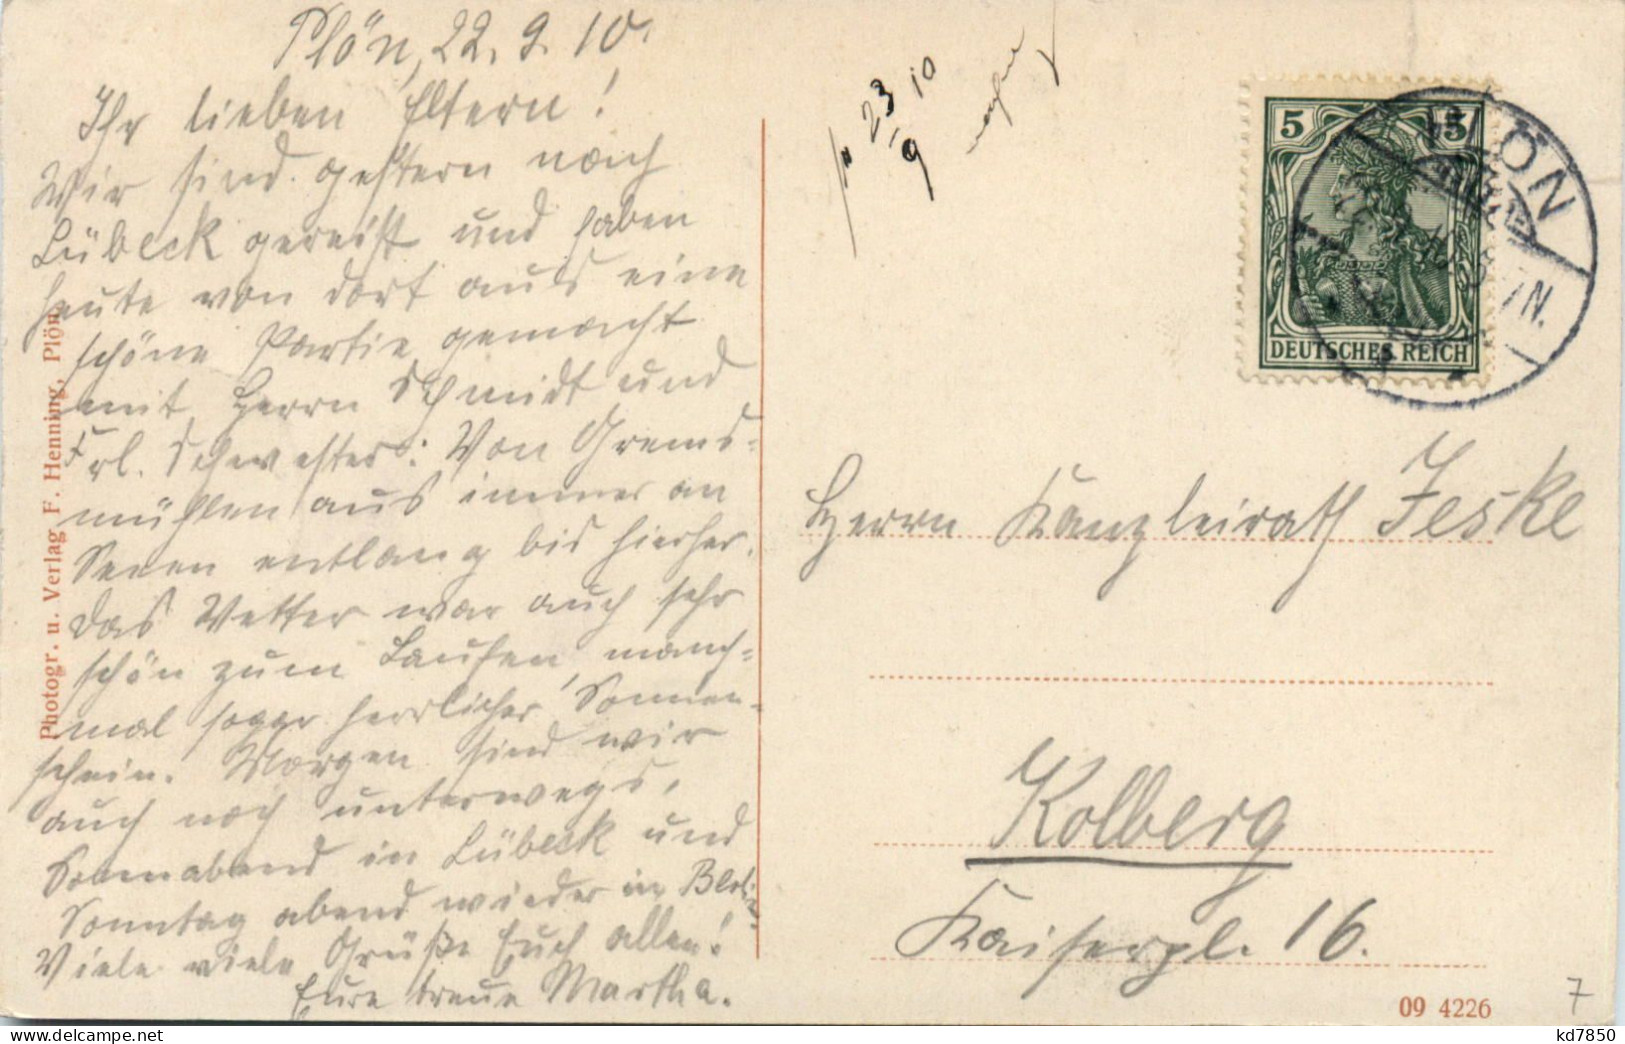 Plön, 22. 9. 10.
Ihr lieben Eltern!
Wir sind gestern nach
Lübeck gereist und haben
heute von dort aus eine
schöne Partie gemacht
mit Herrn Schmidt und
Frl. Schwester: Von Grems-
mühlen aus immer an
Seeen entlang bis hierher.
Das Wetter war auch sehr
schön zum Laufen, manch-
mal sogar herrlicher Sonnen-
schein. Morgen sind wir
auch noch unterwegs,
Sonnabend in Lübeck und
Sonntag abend wieder in Berlin.
Viele viele Grüße Euch allen!
Eure treue Martha.
Photogr. u. Verlag F. Henning, Plön
23/9 10
5 5
DEUTSCHES REICH
PLÖN
Herrn Kanzleirath Jeske
Kolberg
Kaiserpl. 16.
09 4226
7
kd7850